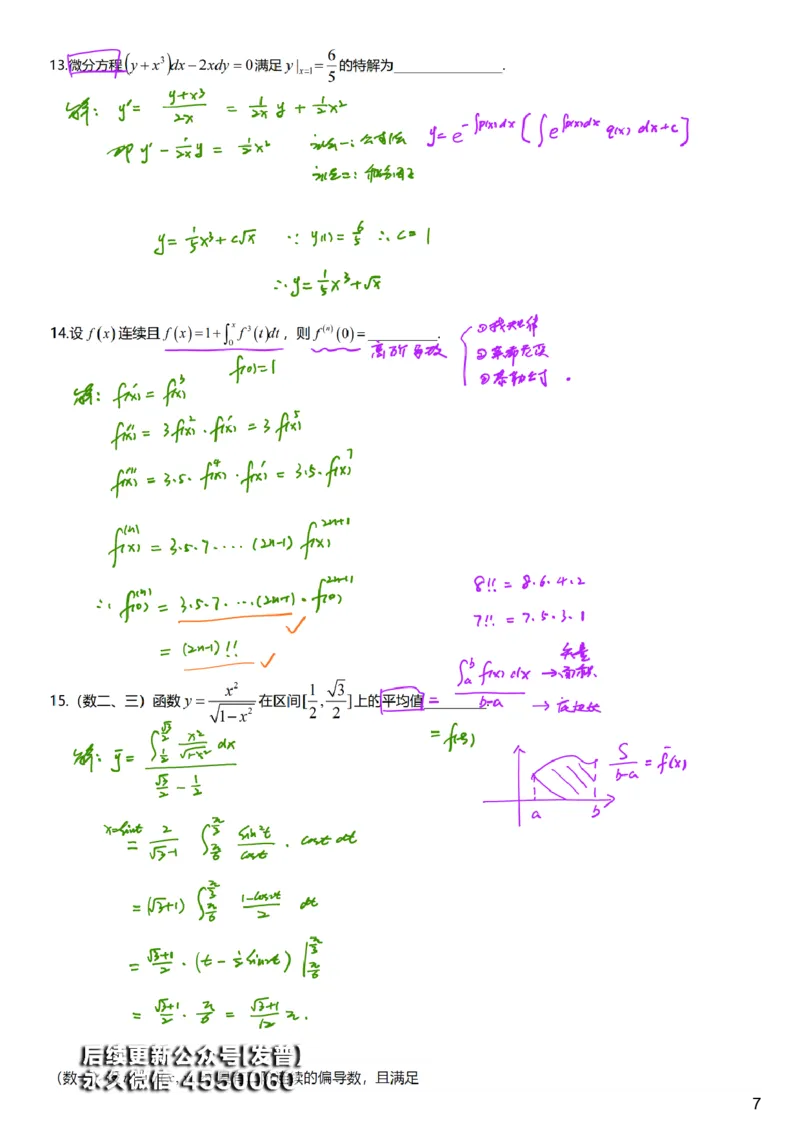 13.微分方程(y+x³)dx−2xdy=0满足y|ₓ₌₁=6/5的特解为____________.
解: y'= (y+x³)/2x = 1/2x y + 1/2 x²
即 y' − 1/2x y = 1/2 x² 法一: 公式法 y=e^{-∫p(x)dx} [∫e^{∫p(x)dx} q(x) dx+c]
法二:
y= 1/5 x³+c√x ∵ y(1)= 6/5 ∴ c= 1
∴ y= 1/5 x³+√x
14.设f(x)连续且f(x)=1+∫₀ˣf³(t)dt，则f⁽ⁿ⁾(0)=__________.
①找规律
高阶导数
②莱布尼茨
③泰勒公式.
f(0)=1
解: f'(x) = f³(x)
f''(x) = 3f²(x)·f'(x) = 3f⁵(x)
f'''(x) = 3·5·f⁴(x)·f'(x) = 3·5·f⁷(x)
f⁽ⁿ⁾(x) = 3·5·7·…·(2n−1) f²ⁿ⁺¹(x)
8!! = 8·6·4·2
∴ f⁽ⁿ⁾(0) = 3·5·7·…·(2n−1)·f²ⁿ⁺¹(0)
7!! = 7·5·3·1
= (2n−1)!!
15.（数二、三）函数y= x²/√(1−x²) 在区间[1/2, √3/2]上的平均值__________
= ∫ₐᵇ f(x) dx / (b−a)
→面积
→区间长
= f(ξ)
解: ȳ= ∫_{1/2}^{√3/2} x²/√(1−x²) dx / (√3/2 − 1/2)
S/(b−a) = f̄(x)
a b
x=sint
= 2/(√3−1) ∫_{π/6}^{π/3} sin²t/cost · cost dt
= (√3+1) ∫_{π/6}^{π/3} (1−cos2t)/2 dt
= (√3+1)/2 · (t − 1/2 sin2t) |_{π/6}^{π/3}
= (√3+1)/2 · π/6 = (√3+1)/12 π.
后续更新公众号[发普]
永久微信 4550060
（数一）的偏导数，且满足
7